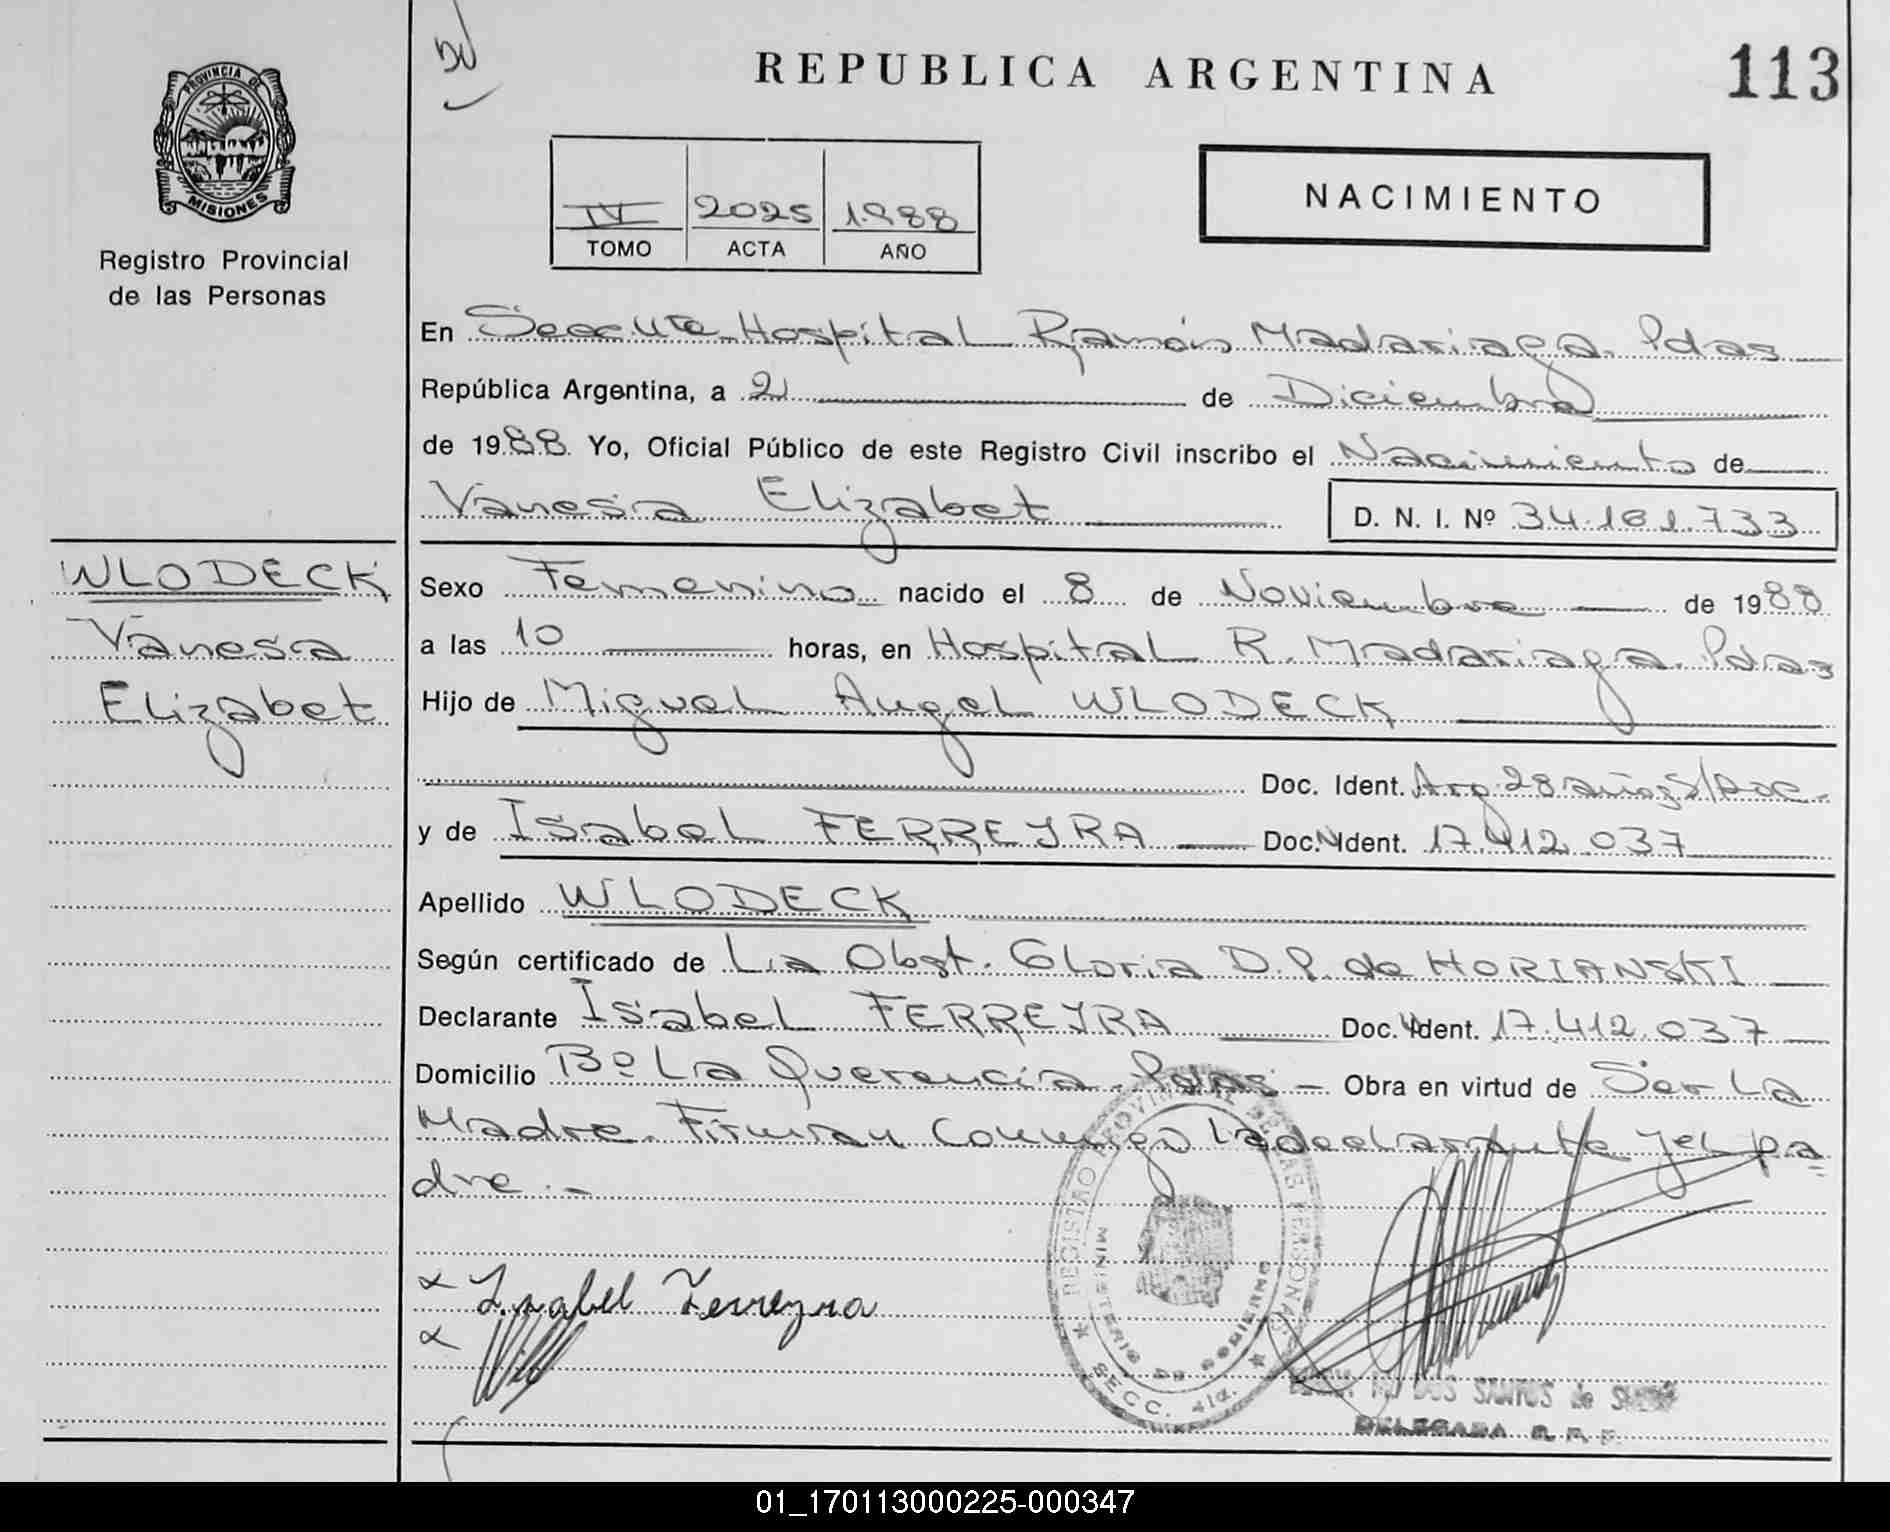 REPUBLICA ARGENTINA
113
PROVINCIA DE
MISIONES
Registro Provincial
de las Personas
IV 2025 1988
TOMO ACTA AÑO
NACIMIENTO
En Secc. 4ta. Hospital Ramón Madariaga. Pdas
República Argentina, a 2 de Diciembre
de 1988 Yo, Oficial Público de este Registro Civil inscribo el Nacimiento de
Vanesa Elizabet D. N. I. Nº 34.181.733
WLODECK
Vanesa
Elizabet
Sexo Femenino nacido el 8 de Noviembre de 1988
a las 10 horas, en Hospital R. Madariaga. Pdas
Hijo de Miguel Angel WLODECK
Doc. Ident. Arg. 28 años S/Doc.
y de Isabel FERREYRA Doc. Ident. 17.412.037
Apellido WLODECK
Según certificado de La Obst. Gloria D.P. de HORIANSKI
Declarante Isabel FERREYRA Doc. Ident. 17.412.037
Domicilio Bº La Querencia. Pdas – Obra en virtud de Ser La
Madre. Firman Conmigo La declarante y el pa
dre.-
REGISTRO PROVINCIAL DE LAS PERSONAS
MINISTERIO DE GOBIERNO
SECC. 4ta.
Isabel Ferreyra
DOS SANTOS de
DELEGADA R. P. P.
01_170113000225-000347